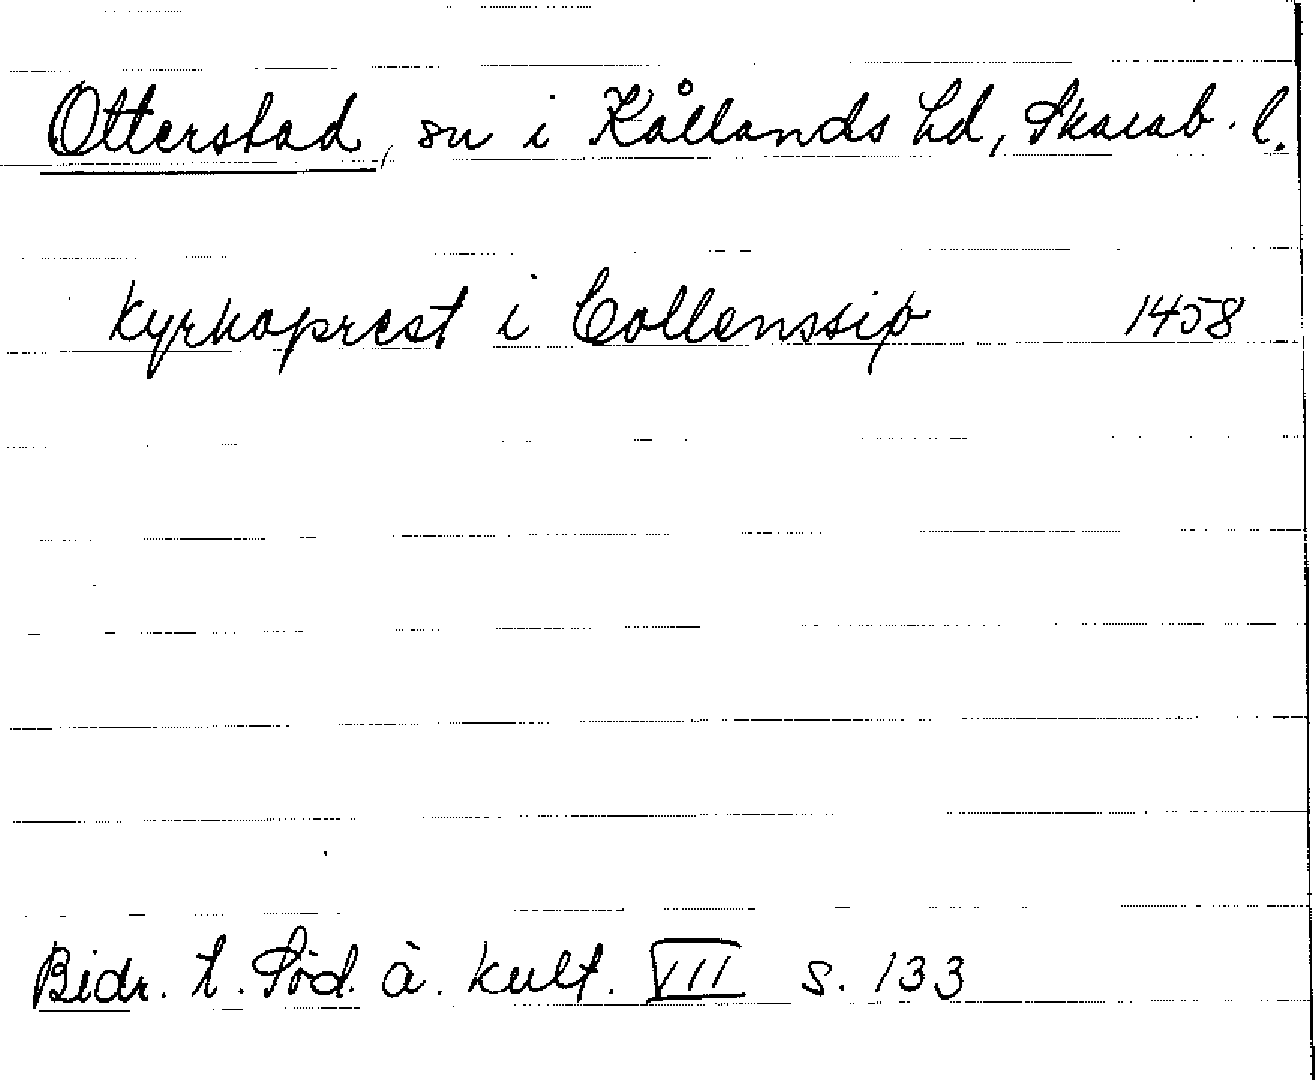 Otterstad, sn i Kållands hd, Skarab. l.
kyrkoprest i Collenssiø 1458
Bidr. t. Söd. ä. kult. VII s. 133